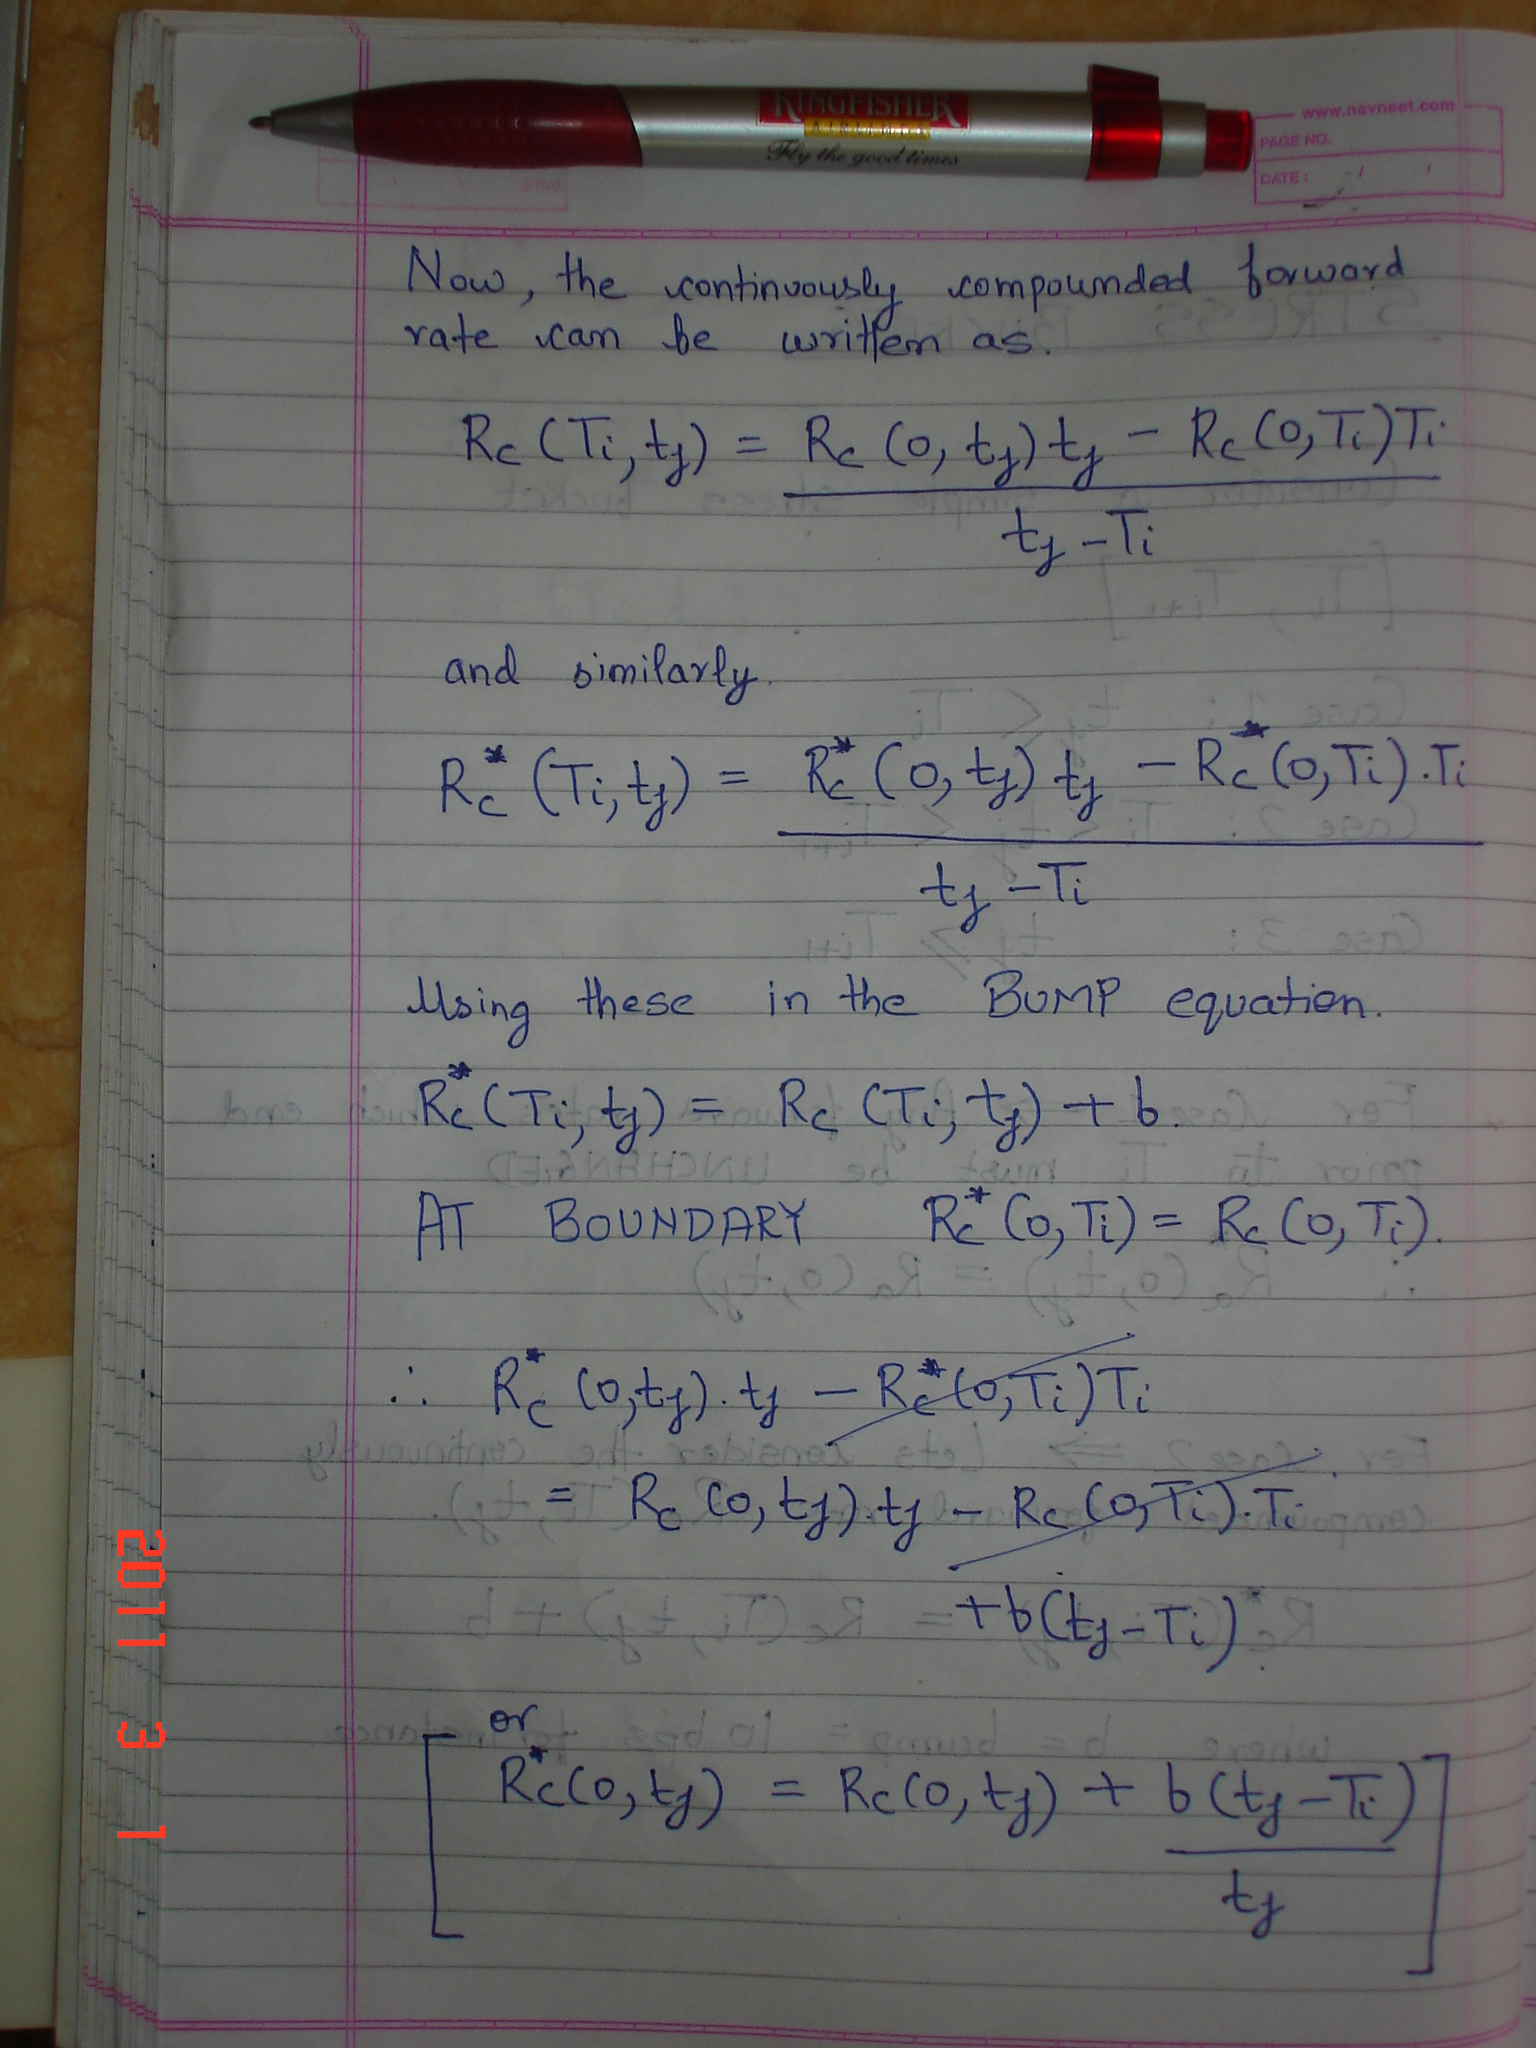 KINGFISHER
AIRLINES
Fly the good times
www.navneet.com
PAGE NO.
DATE: / /
Now, the continuously compounded forward
rate can be written as.
Rc (Ti, tj) = Rc (0, tj) tj - Rc (0, Ti) Ti
tj - Ti
and similarly.
Rc* (Ti, tj) = Rc* (0, tj) tj - Rc* (0, Ti) . Ti
tj - Ti
Using these in the BUMP equation.
Rc* (Ti, tj) = Rc (Ti, tj) + b.
AT BOUNDARY Rc* (0, Ti) = Rc (0, Ti).
∴ Rc* (0, tj) . tj - Rc* (0, Ti) Ti
= Rc (0, tj) . tj - Rc (0, Ti) . Ti
+ b (tj - Ti)
or
[ Rc* (0, tj) = Rc (0, tj) + b (tj - Ti) ]
tj
2011 3 1